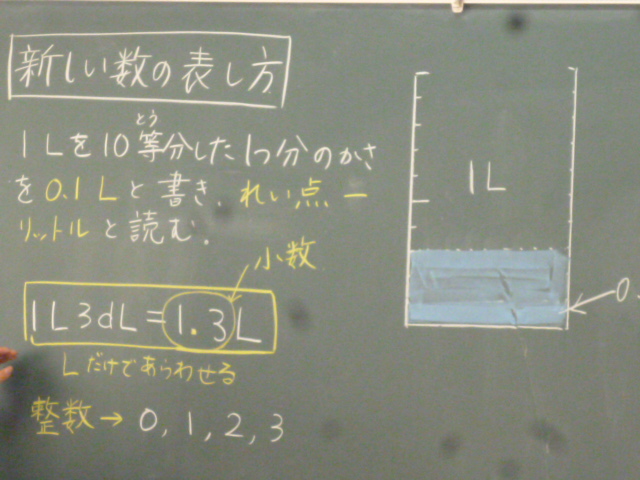 新しい数の表し方
とう
1Lを10等分した1つ分のかさ
を0.1Lと書き、れい点一
リットルと読む。
小数
1L3dL=1.3L
Lだけであらわせる
整数→0,1,2,3
1L
0.